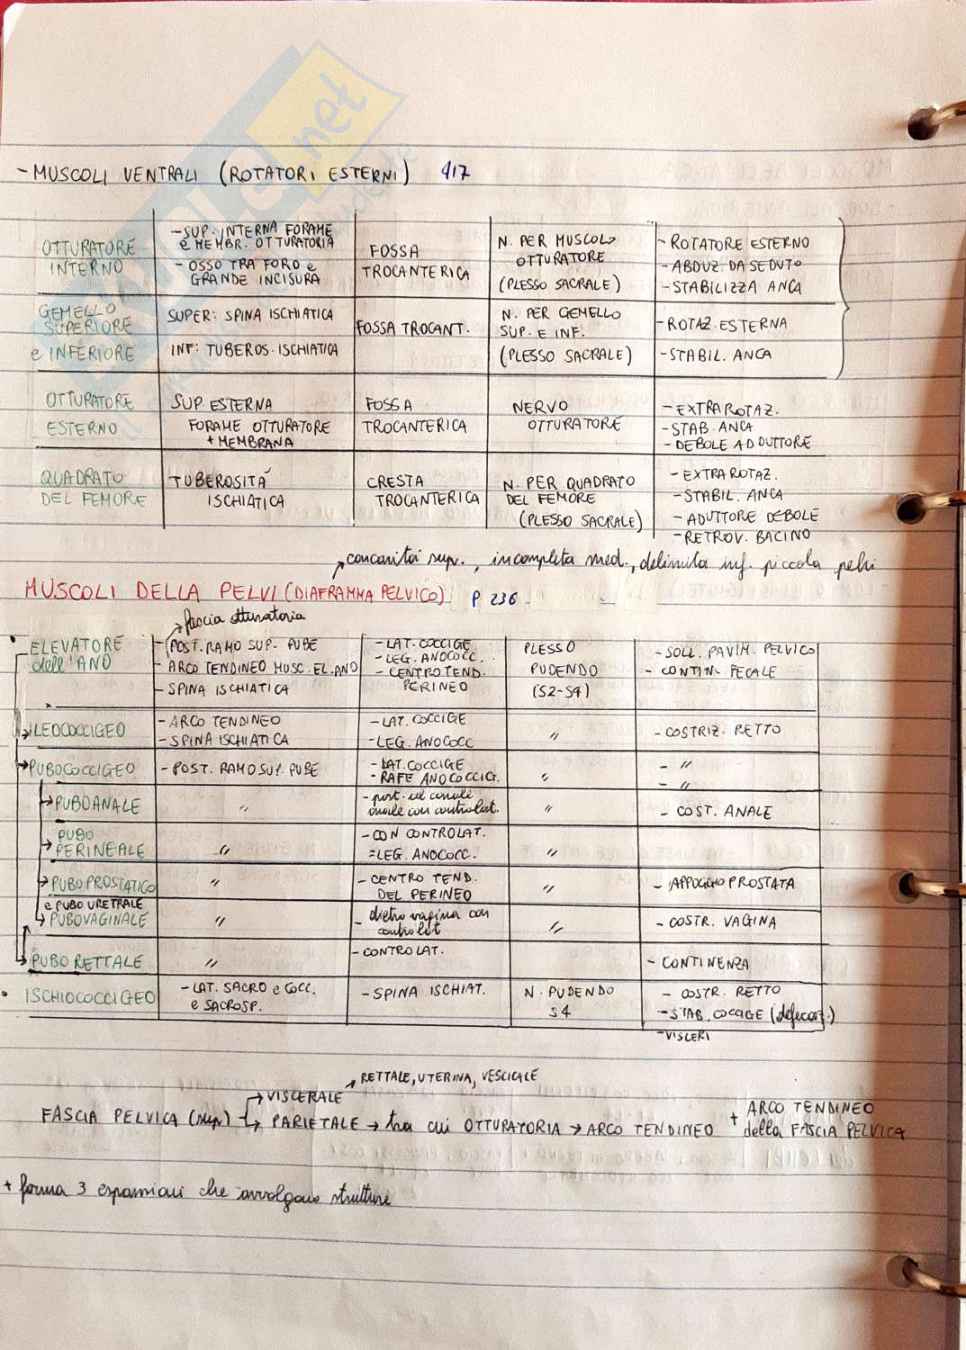 - MUSCOLI VENTRALI (ROTATORI ESTERNI) 417
OTTURATORE INTERNO
- SUP. INTERNA FORAME e MEMBR. OTTURATORIA
- OSSO TRA FORO e GRANDE INCISURA
FOSSA TROCANTERICA
N. PER MUSCOLO OTTURATORE (PLESSO SACRALE)
- ROTATORE ESTERNO
- ABDUZ. DA SEDUTO
- STABILIZZA ANCA
GEMELLO SUPERIORE e INFERIORE
SUPER: SPINA ISCHIATICA
INF: TUBEROS. ISCHIATICA
FOSSA TROCANT.
N. PER GEMELLO SUP. E INF. (PLESSO SACRALE)
- ROTAZ. ESTERNA
- STABIL. ANCA
OTTURATORE ESTERNO
SUP. ESTERNA FORAME OTTURATORE + MEMBRANA
FOSSA TROCANTERICA
NERVO OTTURATORE
- EXTRAROTAZ.
- STAB. ANCA
- DEBOLE ADDUTTORE
QUADRATO DEL FEMORE
TUBEROSITÀ ISCHIATICA
CRESTA TROCANTERICA
N. PER QUADRATO DEL FEMORE (PLESSO SACRALE)
- EXTRAROTAZ.
- STABIL. ANCA
- ADUTTORE DEBOLE
- RETROV. BACINO
concavità sup., incompleta med., delimita inf. piccola pelvi
MUSCOLI DELLA PELVI (DIAFRAMMA PELVICO) P 236
fascia otturatoria
ELEVATORE dell'ANO
- POST. RAMO SUP. PUBE
- ARCO TENDINEO MUSC. EL. ANO
- SPINA ISCHIATICA
- LAT. COCCIGE
- LEG. ANOCOCC.
- CENTRO TEND. PERINEO
PLESSO PUDENDO (S2-S4)
- SOLL. PAVIM. PELVICO
- CONTIN. FECALE
ILEOCOCCIGEO
- ARCO TENDINEO
- SPINA ISCHIATICA
- LAT. COCCIGE
- LEG. ANOCOCC
"
- COSTRIZ. RETTO
PUBOCOCCIGEO
- POST. RAMO SUP. PUBE
- LAT. COCCIGE
- RAFE ANOCOCCIG.
"
- "
- "
PUBOANALE
"
- post. al canale anale con controlat.
"
- COST. ANALE
PUBO PERINEALE
"
- CON CONTROLAT.
= LEG. ANOCOCC.
"
PUBOPROSTATICO
"
- CENTRO TEND. DEL PERINEO
"
- APPOGGIO PROSTATA
e PUBO URETRALE
PUBOVAGINALE
"
- dietro vagina con controlat
"
- COSTR. VAGINA
PUBORETTALE
"
- CONTROLAT.
- CONTINENZA
ISCHIOCOCCIGEO
- LAT. SACRO e COCC. e SACROSP.
- SPINA ISCHIAT.
N. PUDENDO S4
- COSTR. RETTO
- STAB. COCCIGE (defecaz.)
- VISCERI
RETTALE, UTERINA, VESCICALE
VISCERALE
FASCIA PELVICA (sup) PARIETALE → tra cui OTTURATORIA → ARCO TENDINEO + ARCO TENDINEO della FASCIA PELVICA
+ forma 3 espansioni che avvolgono strutture